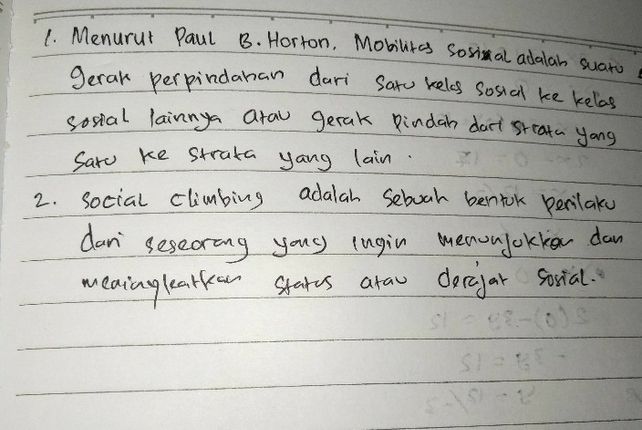 1. Menurut Paul B. Horton, Mobilitas sosial adalah suatu
gerak perpindahan dari satu kelas sosial ke kelas
sosial lainnya atau gerak pindah dari strata yang
satu ke strata yang lain.
2. social climbing adalah sebuah bentuk perilaku
dari seseorang yang ingin menunjukkan dan
meningkatkan status atau derajat sosial.